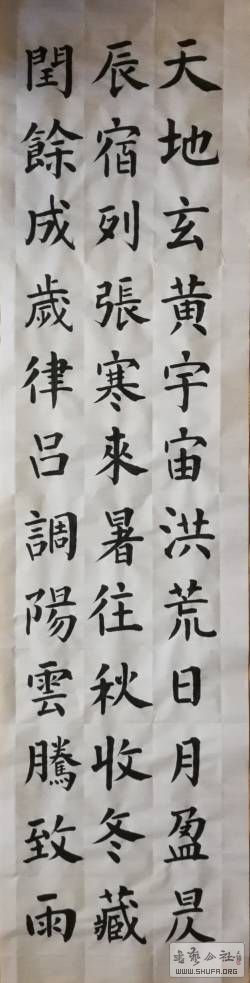 天地玄黄宇宙洪荒日月盈昃
辰宿列張寒來暑往秋收冬藏
閏餘成歲律吕調陽雲騰致雨
WWW.SHUFA.ORG